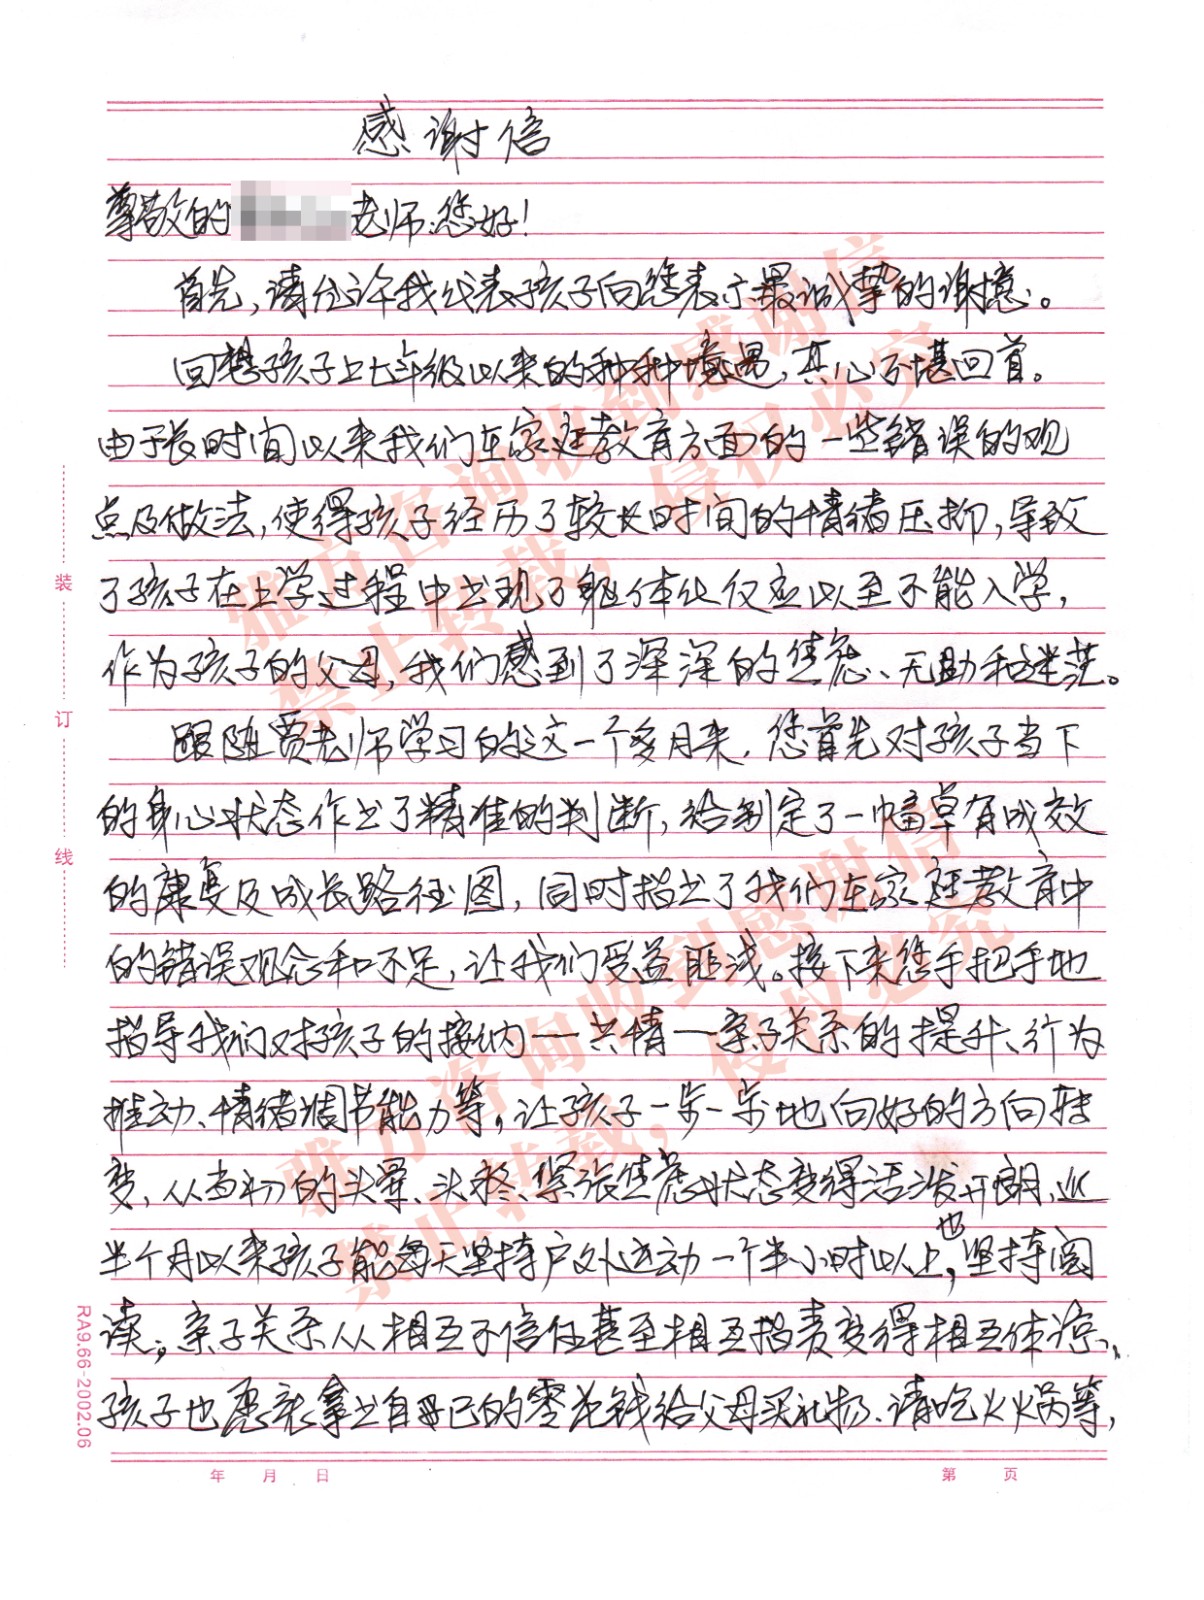 感谢信
尊敬的 老师:您好!
首先,请允许我代表孩子向您表示最诚挚的谢意。
回想孩子上七年级以来的种种境遇,真心不堪回首。
由于长时间以来我们在家庭教育方面的一些错误的观
点及做法,使得孩子经历了较长时间的情绪压抑,导致
了孩子在上学过程中出现了躯体化反应以至不能入学,
作为孩子的父母,我们感到了深深的焦虑、无助和迷茫。
跟随贾老师学习的这一个多月来,您首先对孩子当下
的身心状态作出了精准的判断,给制定了一幅卓有成效
的康复及成长路径图,同时指出了我们在家庭教育中
的错误观念和不足,让我们受益匪浅。接下来您手把手地
指导我们对孩子的接纳—共情—亲子关系的提升、行为
推动、情绪调节能力等,让孩子一步一步地向好的方向转
变,从当初的头晕、头疼、紧张焦虑状态变得活泼开朗,近
半个月以来孩子能每天坚持户外运动一个半小时以上,也坚持阅
读;亲子关系从相互不信任甚至相互指责变得相互体谅、
孩子也愿意拿出自己的零花钱给父母买礼物、请吃火锅等,
装
订
线
RA9.66-2002.06
年 月 日
第 页
雅方咨询收到感谢信
禁止转载,侵权必究
雅方咨询收到感谢信
禁止转载,侵权必究